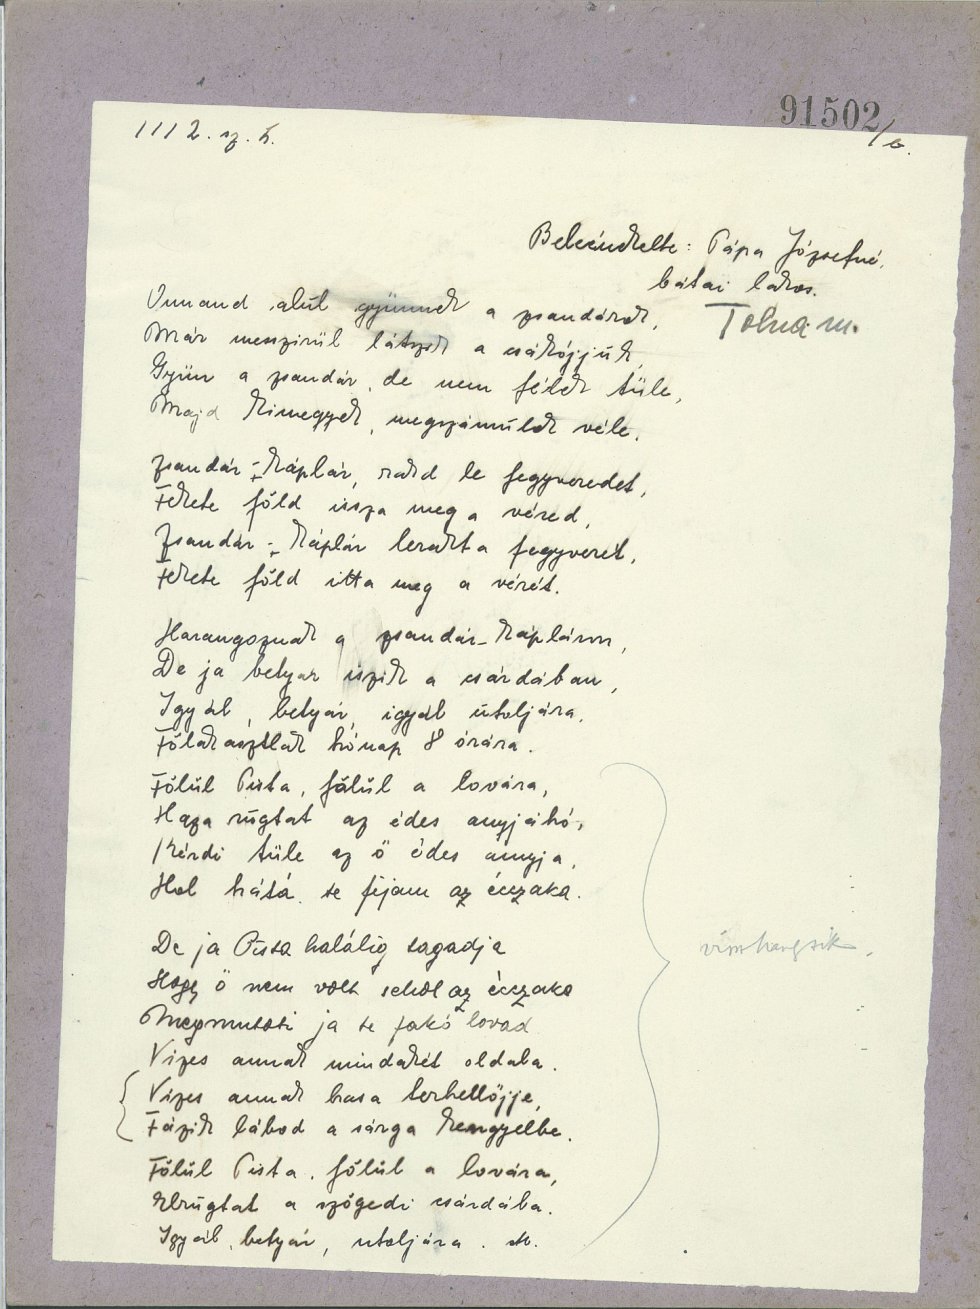 91502/b.
1112. sz. h.
Beleénekelte: Pápa Józsefné,
bátai lakos.
Tolna m.
Onnand alúl gyünnek a zsandárok,
Már messzirül látszik a csákójjuk,
Gyün a zsandár, de nem félek tüle,
Majd kimegyek, megszámúlok véle.
Zsandár-káplár, rakd le fegyveredet,
Fekete föld issza meg a véred,
Zsandár-káplár lerakta fegyverét,
Fekete föld itta meg a vérét.
Harangoznak a zsandár-kápláron,
De ja betyar iszik a csárdában,
Igyál, betyár, igyál útoljára,
Fölakasztlak hónap 8 órára.
Fölül Pista, fölül a lovára,
Haza rúgtat az édes anyjáhó,
Kérdi tüle az ő édes annyja,
Hol hátá te fijam az écczaka.
De ja Pista halálig tagadja
Hogy ő nem volt sehol az écczaka
Megmutati ja te fakó lovad
Vizes annak mindakét oldala.
Vizes annak hasa terhellőjje,
Fázik lábod a sárga kengyelbe.
Fölül Pista, fölül a lovára,
Elrúgtat a szögedi csárdába.
Igyál, betyár, utoljára. stb.
visszhangzik.